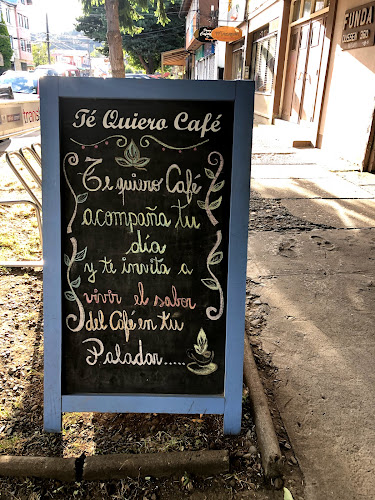 Té Quiero Café
Te quiero Café
acompaña tu
día
y te invita a
vivir el sabor
del Café en tu
Paladar.....
FUNDA